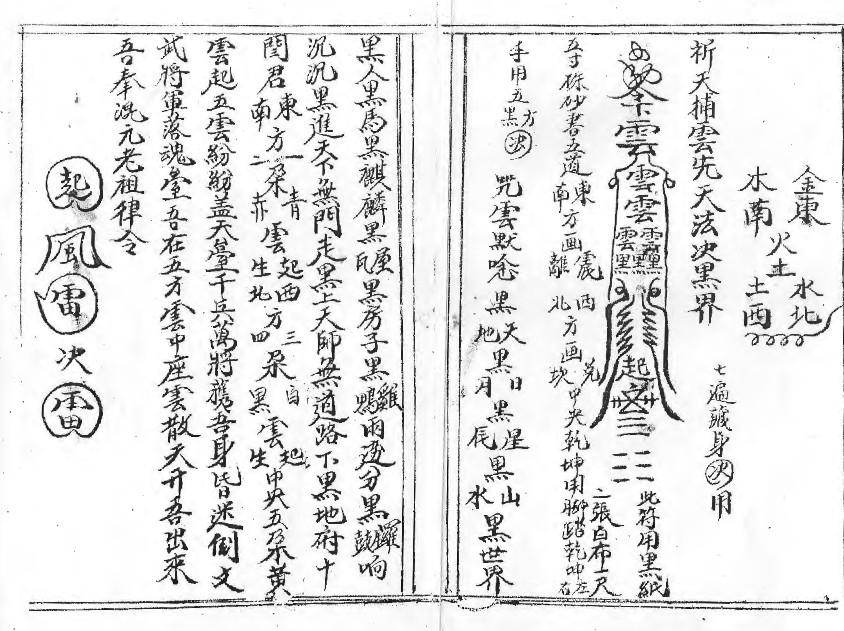 金東 水北
火土
水南 土西
七遍藏身决用
祈天捕雲先天法决黑界
雲
雲
雲
雲雲
黑黑
起
此符用黑紙
二張白布一尺
五寸硃砂書五道東南方画震離西北方画兑坎中央乾坤用脚踏乾坤左右
手用五方黑决
咒雲默唸 黑天地黑日月黑星辰黑山水黑世界
黑人黑馬黑麒麟黑瓦屋黑房子黑雞鴨兩邊分黑鑼鼓响
沉沉黑進天下無門走黑上天師無道路下黑地府十
閻君東南方一二朵青赤雲起生西北方三四朵白黑雲起生中央五朵黄
雲起五雲紛紛盖天堂千兵萬將護吾身皆迷倒文
武將軍落魂堂吾在五方雲中座雲散天开吾出來
吾奉混元老祖律令
起
風
雷
决
雷